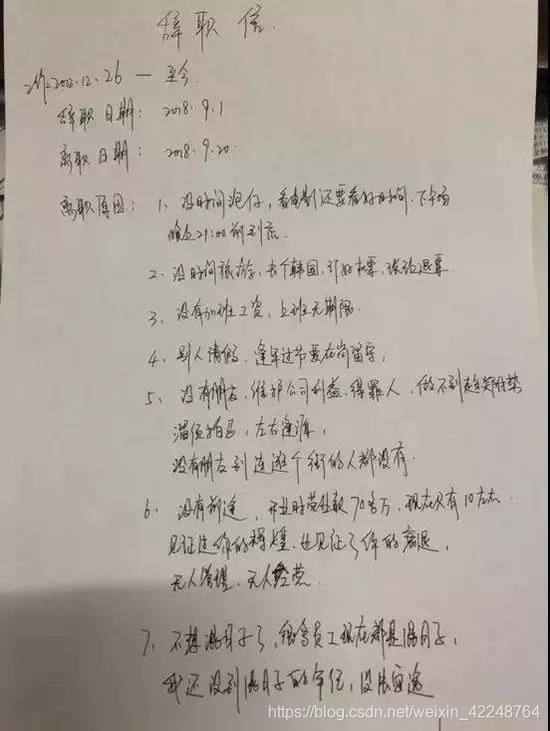 辞职信.
2012.12.26 — 至今.
辞职日期: 2018.9.1
离职日期: 2018.9.20.
离职原因: 1、没时间泡仔, 看电影还要看好时间.下午场
晚上21:00前到店.
2、没时间旅游, 去个韩国, 订好机票, 谈论退票.
3、没有加班工资, 上班无期限.
4、别人请假, 逢年过节要在岗留守,
5、没有朋友, 维护公司利益, 得罪人, 做不到趋炎附势
溜须拍马, 左右逢源,
没有朋友到连逛个街的人都没有.
6、没有前途, 开业时营业额70多万, 现在只有10左右.
见证过你的辉煌, 也见证了你的衰退,
无人管理, 无人经营.
7、不想混日子了, 很多员工现在都是混日子,
我还没到混日子的年纪, 没法
https://blog.csdn.net/weixin_42248764